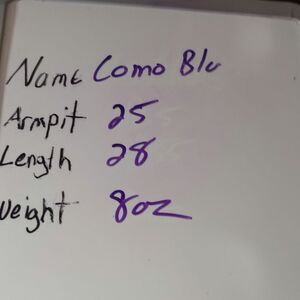 Name Como Blu
Armpit 25
Length 28
Weight 8oz